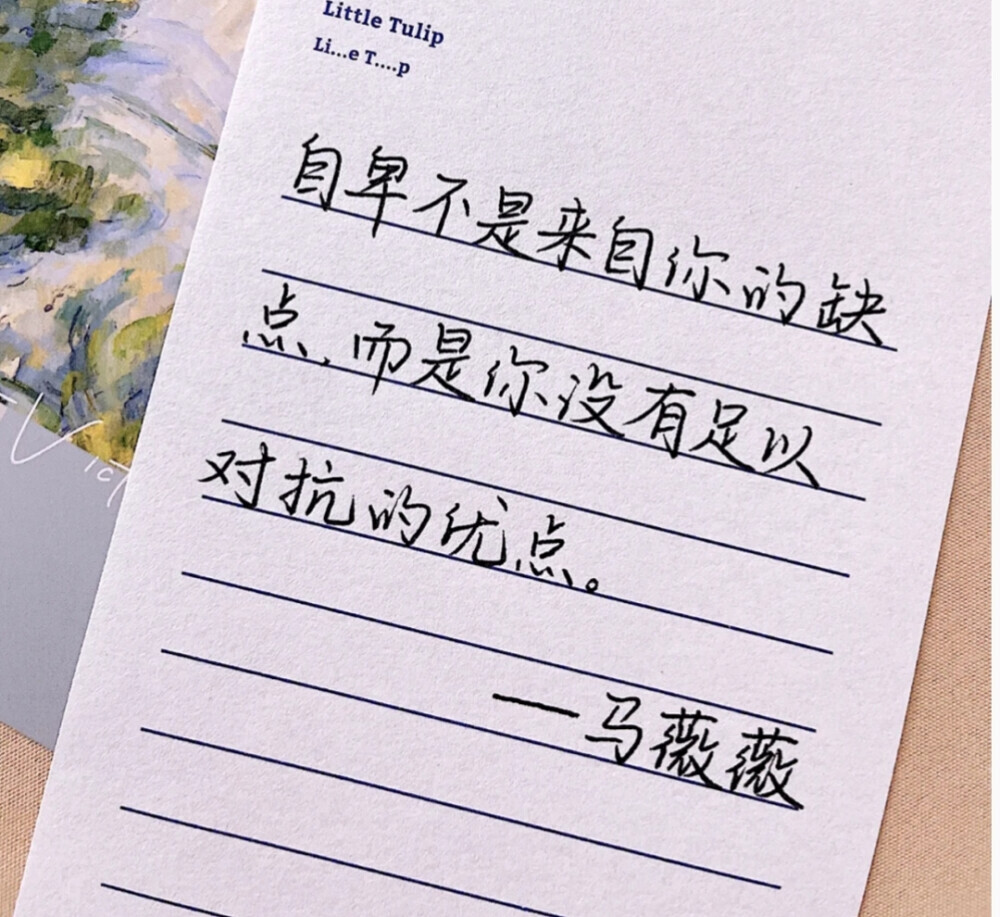 Little Tulip
Li...e T....p
自卑不是来自你的缺
点,而是你没有足以
对抗的优点。
——马薇薇
Vict